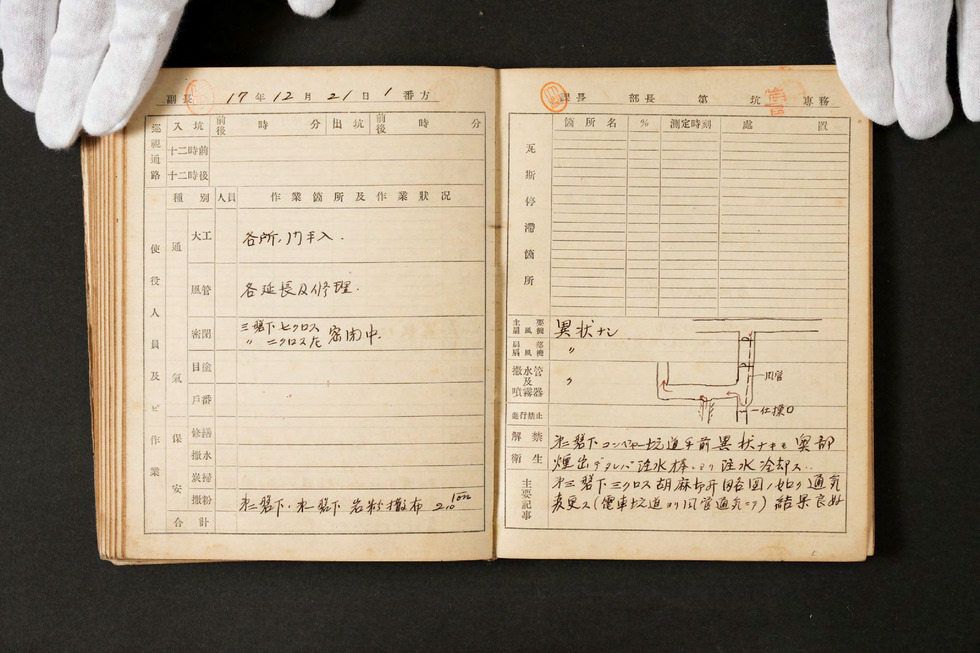 副長 17年12月21日 1番方
巡視通路 入坑 前後 時 分 出坑 前後 時 分
十二時前
十二時後
使役人員及ビ作業
種別 人員 作業箇所及作業狀況
通氣
大工 各所、門手入.
風管 各延長及修理.
密閉 三磐下七クロス 密閉中.
〃 二クロス左
目塗
戶番
保安
修繕
撒水
炭掃
撒粉 岩粉撒布 2.0
合計
課長 部長 第 坑 專務
瓦斯停滯箇所
箇所名 % 測定時刻 處置
主要扇風機 異狀ナシ
局部扇風機 〃
撒水管及噴霧器 〃
風管
仕操口
進行禁止
解禁
衛生
磐下コンベヤー坑道手前異狀ナキモ奥部
煙出デタレバ注水 ヨリ注水冷却ス.
主要記事
磐下三クロス 図ノ如ク通気
変更ス(電車坑道ヨリ風管通気ニテ) 結果良好